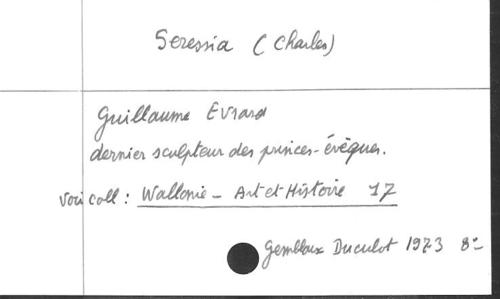 Seressia (Charles)
Guillaume Evrard
dernier sculpteur des princes-évèques.
voir coll : Wallonie - Art et Histoire 17
Gembloux Duculot 1973 8°